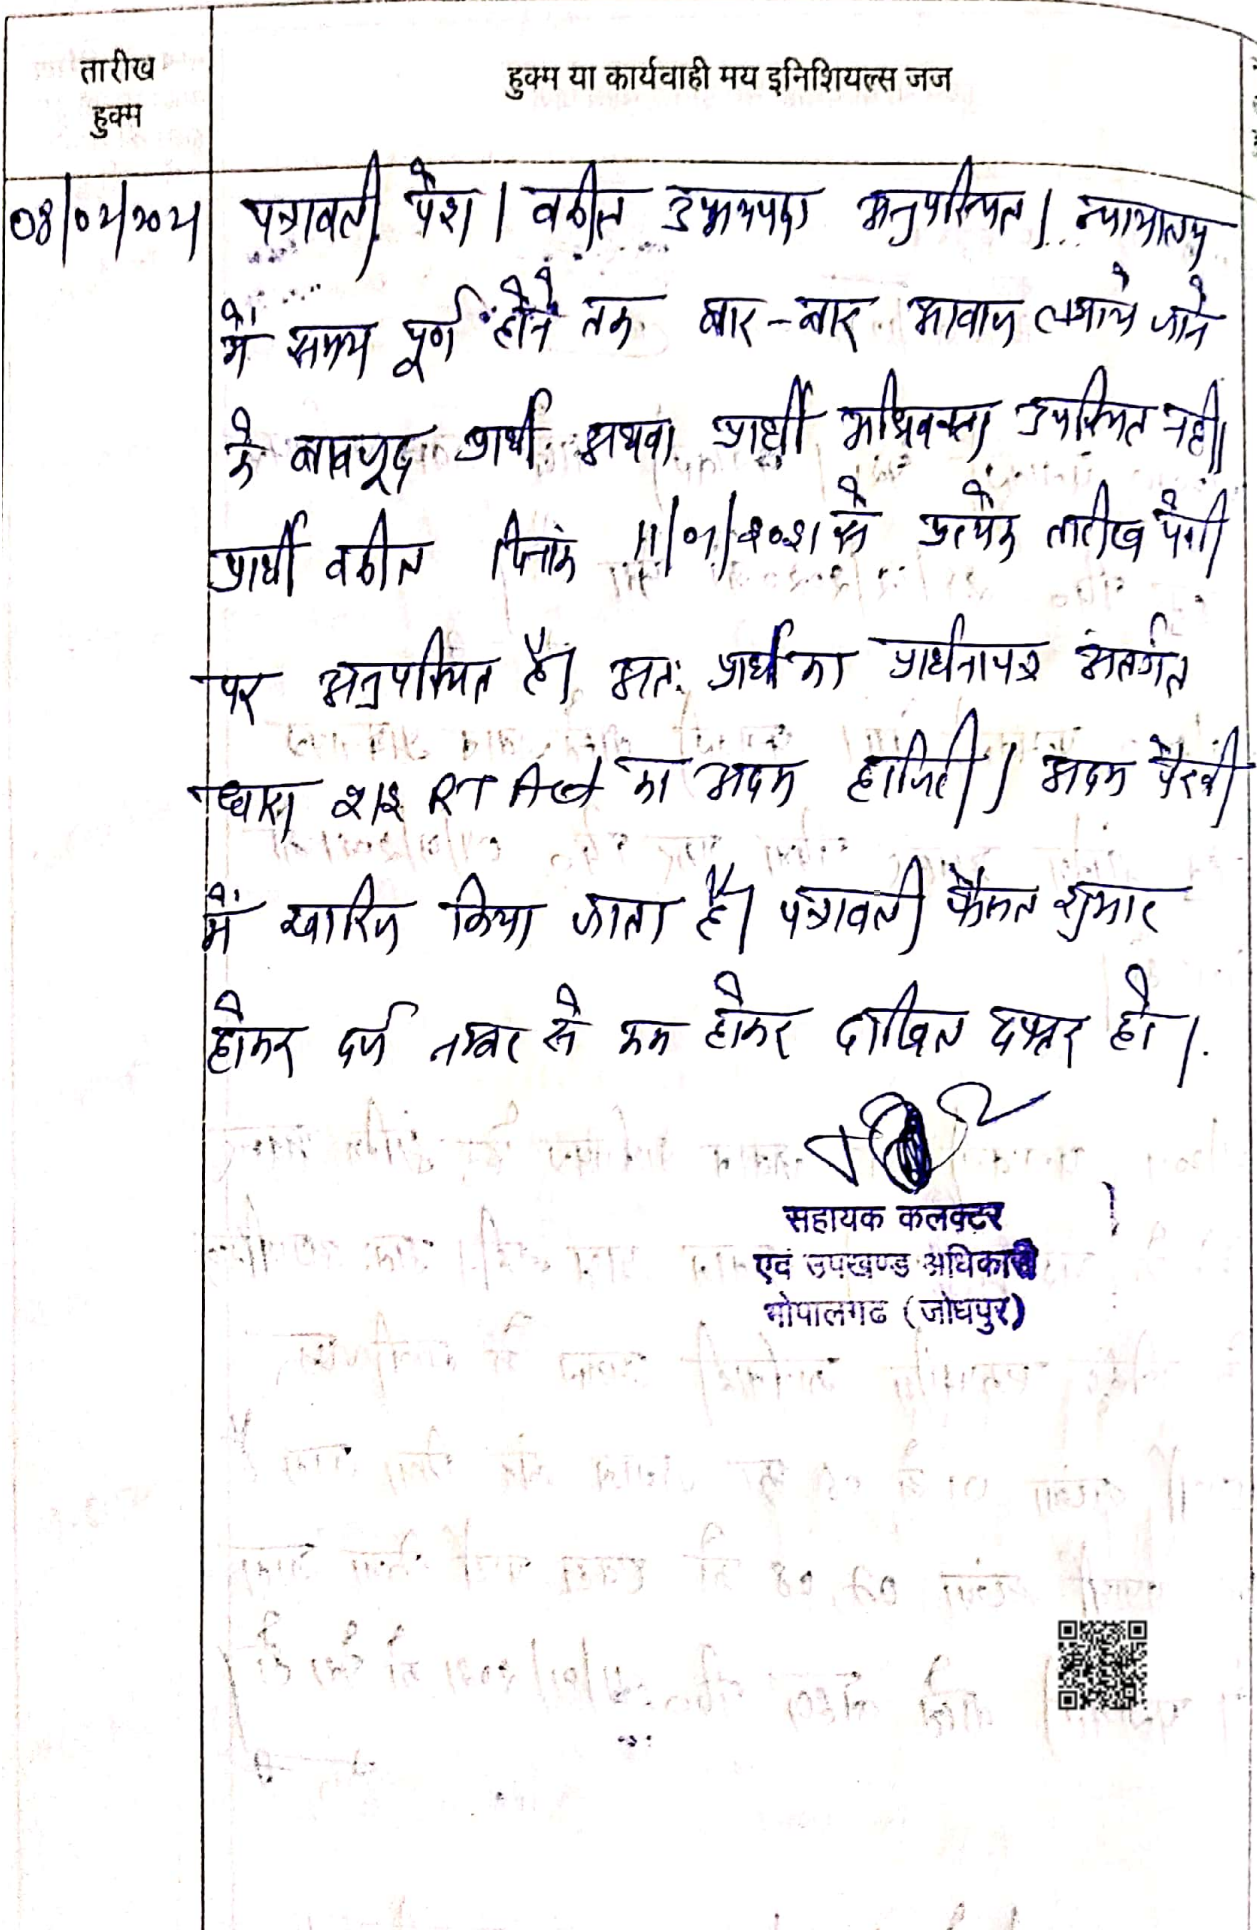 तारीख
हुक्म
हुक्म या कार्यवाही मय इनिशियल्स जज
पत्रावली पेश। वकील उभयपक्ष अनुपस्थित। न्यायालय
में समय पूर्ण होने तक बार-बार आवाज लगाये जाने
के बावजूद प्रार्थी अथवा प्रार्थी अधिवक्ता उपस्थित नहीं।
प्रार्थी वकील दिनांक 11/01/2021 से प्रत्येक तारीख पेशी
पर अनुपस्थित है। अतः प्रार्थी का प्रार्थनापत्र अंतर्गत
धारा 212 RT Act का अदम हाजिरी / अदम पैरवी
में खारिज किया जाता है। पत्रावली फैसल शुमार
होकर दर्ज नम्बर से कम होकर दाखिल दफ्तर हो।
सहायक कलक्टर
एवं उपखण्ड अधिकारी
भोपालगढ (जोधपुर)